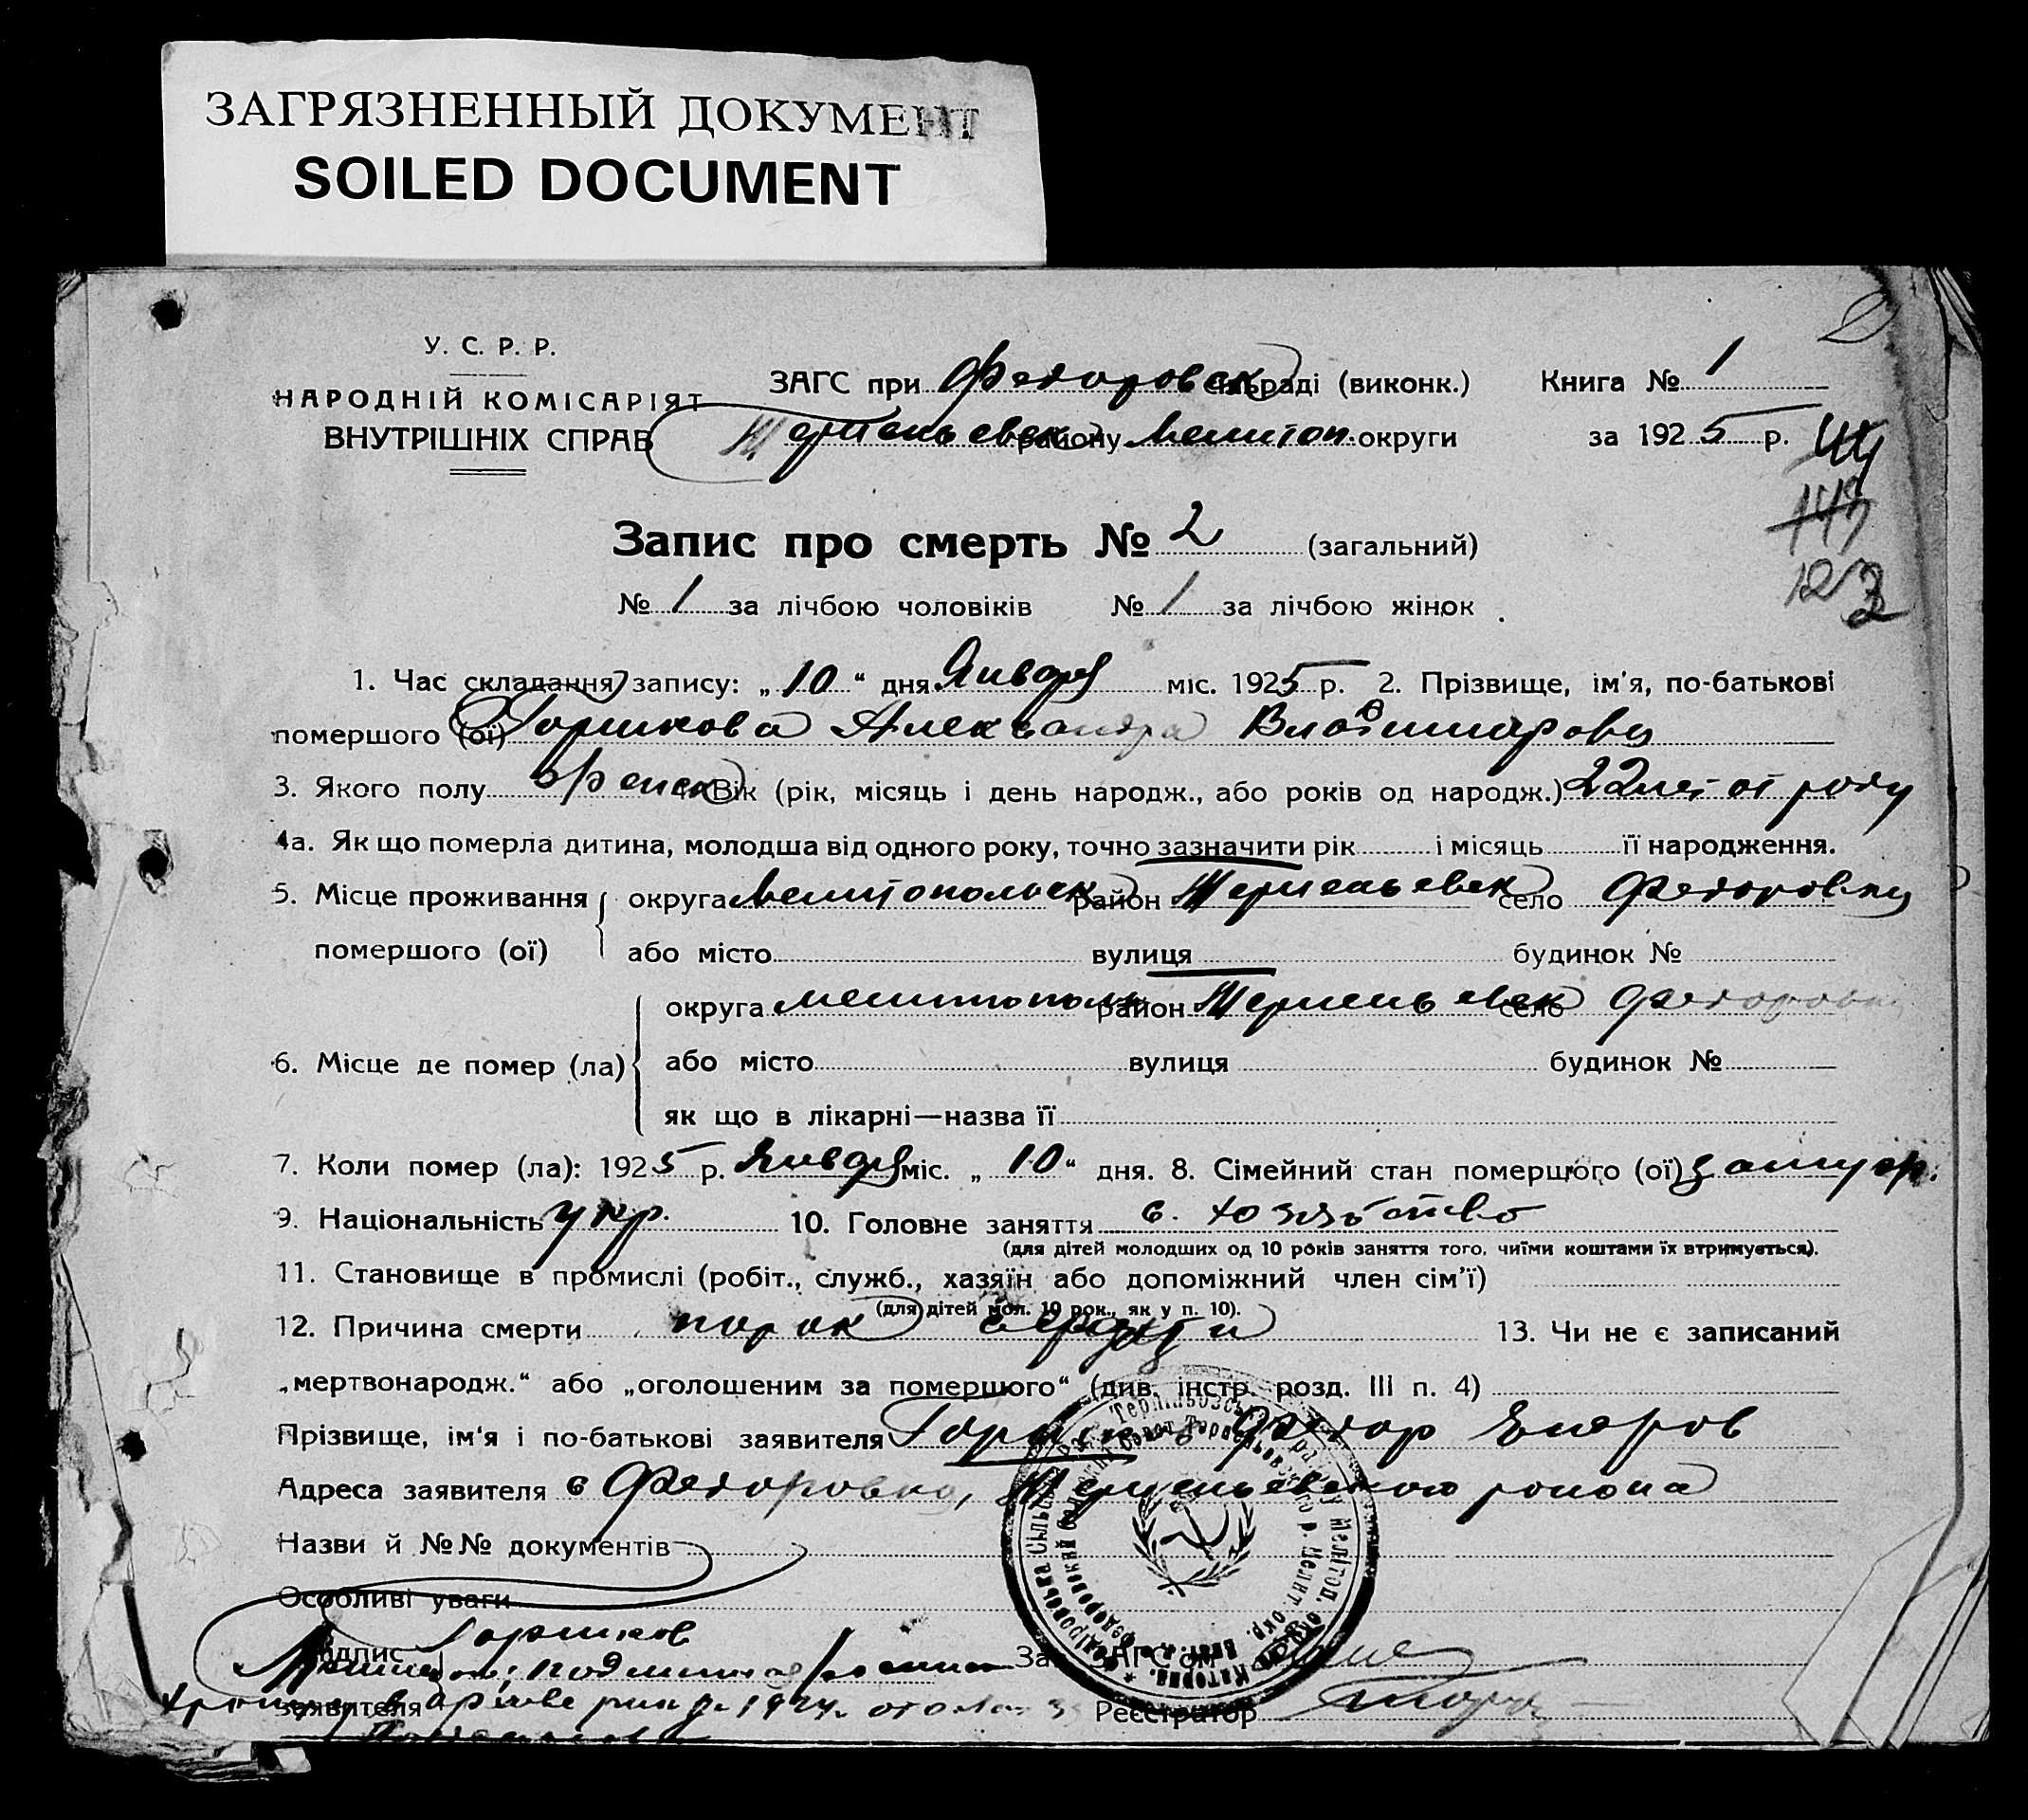 ЗАГРЯЗНЕННЫЙ ДОКУМЕНТ
SOILED DOCUMENT
У. С. Р. Р.
НАРОДНІЙ КОМІСАРІЯТ
ВНУТРІШНІХ СПРАВ
ЗАГС при Федоровск сільраді (виконк.) Книга № 1
району Мелитоп. округи за 1925 р.
Запис про смерть № 2 (загальний)
№ 1 за лічбою чоловіків № 1 за лічбою жінок
1. Час складання запису: „10“ дня Января міс. 1925 р. 2. Прізвище, ім'я, по-батькові
помершого (ої) Горшкова Александра Владимировн
3. Якого полу женск Вік (рік, місяць і день народж., або років од народж.) 22 лет от роду
4а. Як що померла дитина, молодша від одного року, точно зазначити рік і місяць її народження.
5. Місце проживання округа Мелитопольск район село Федоровку
помершого (ої) або місто вулиця будинок №
округа мелитополь район село Федоровк
6. Місце де помер (ла) або місто вулиця будинок №
як що в лікарні—назва її
7. Коли помер (ла): 1925 р. Января міс. „10“ дня. 8. Сімейний стан помершого (ої) замуж.
9. Національність укр. 10. Головне заняття с. хозяйство
(для дітей молодших од 10 років заняття того, чиїми коштами їх втримується).
11. Становище в промислі (робіт., служб., хазяїн або допоміжний член сім'ї)
(для дітей мол. 10 рок., як у п. 10).
12. Причина смерти порок сердца 13. Чи не є записаний
„мертвонародж.“ або „оголошеним за помершого“ (див. інстр. розд. III п. 4)
Прізвище, ім'я і по-батькові заявителя Горшков Федор Егоров
Адреса заявителя с Федоровка, района
Назви й №№ документів
Особливі уваги
Підпис Горшков
Зав. ЗАГС'ом
заявителя Реєстратор